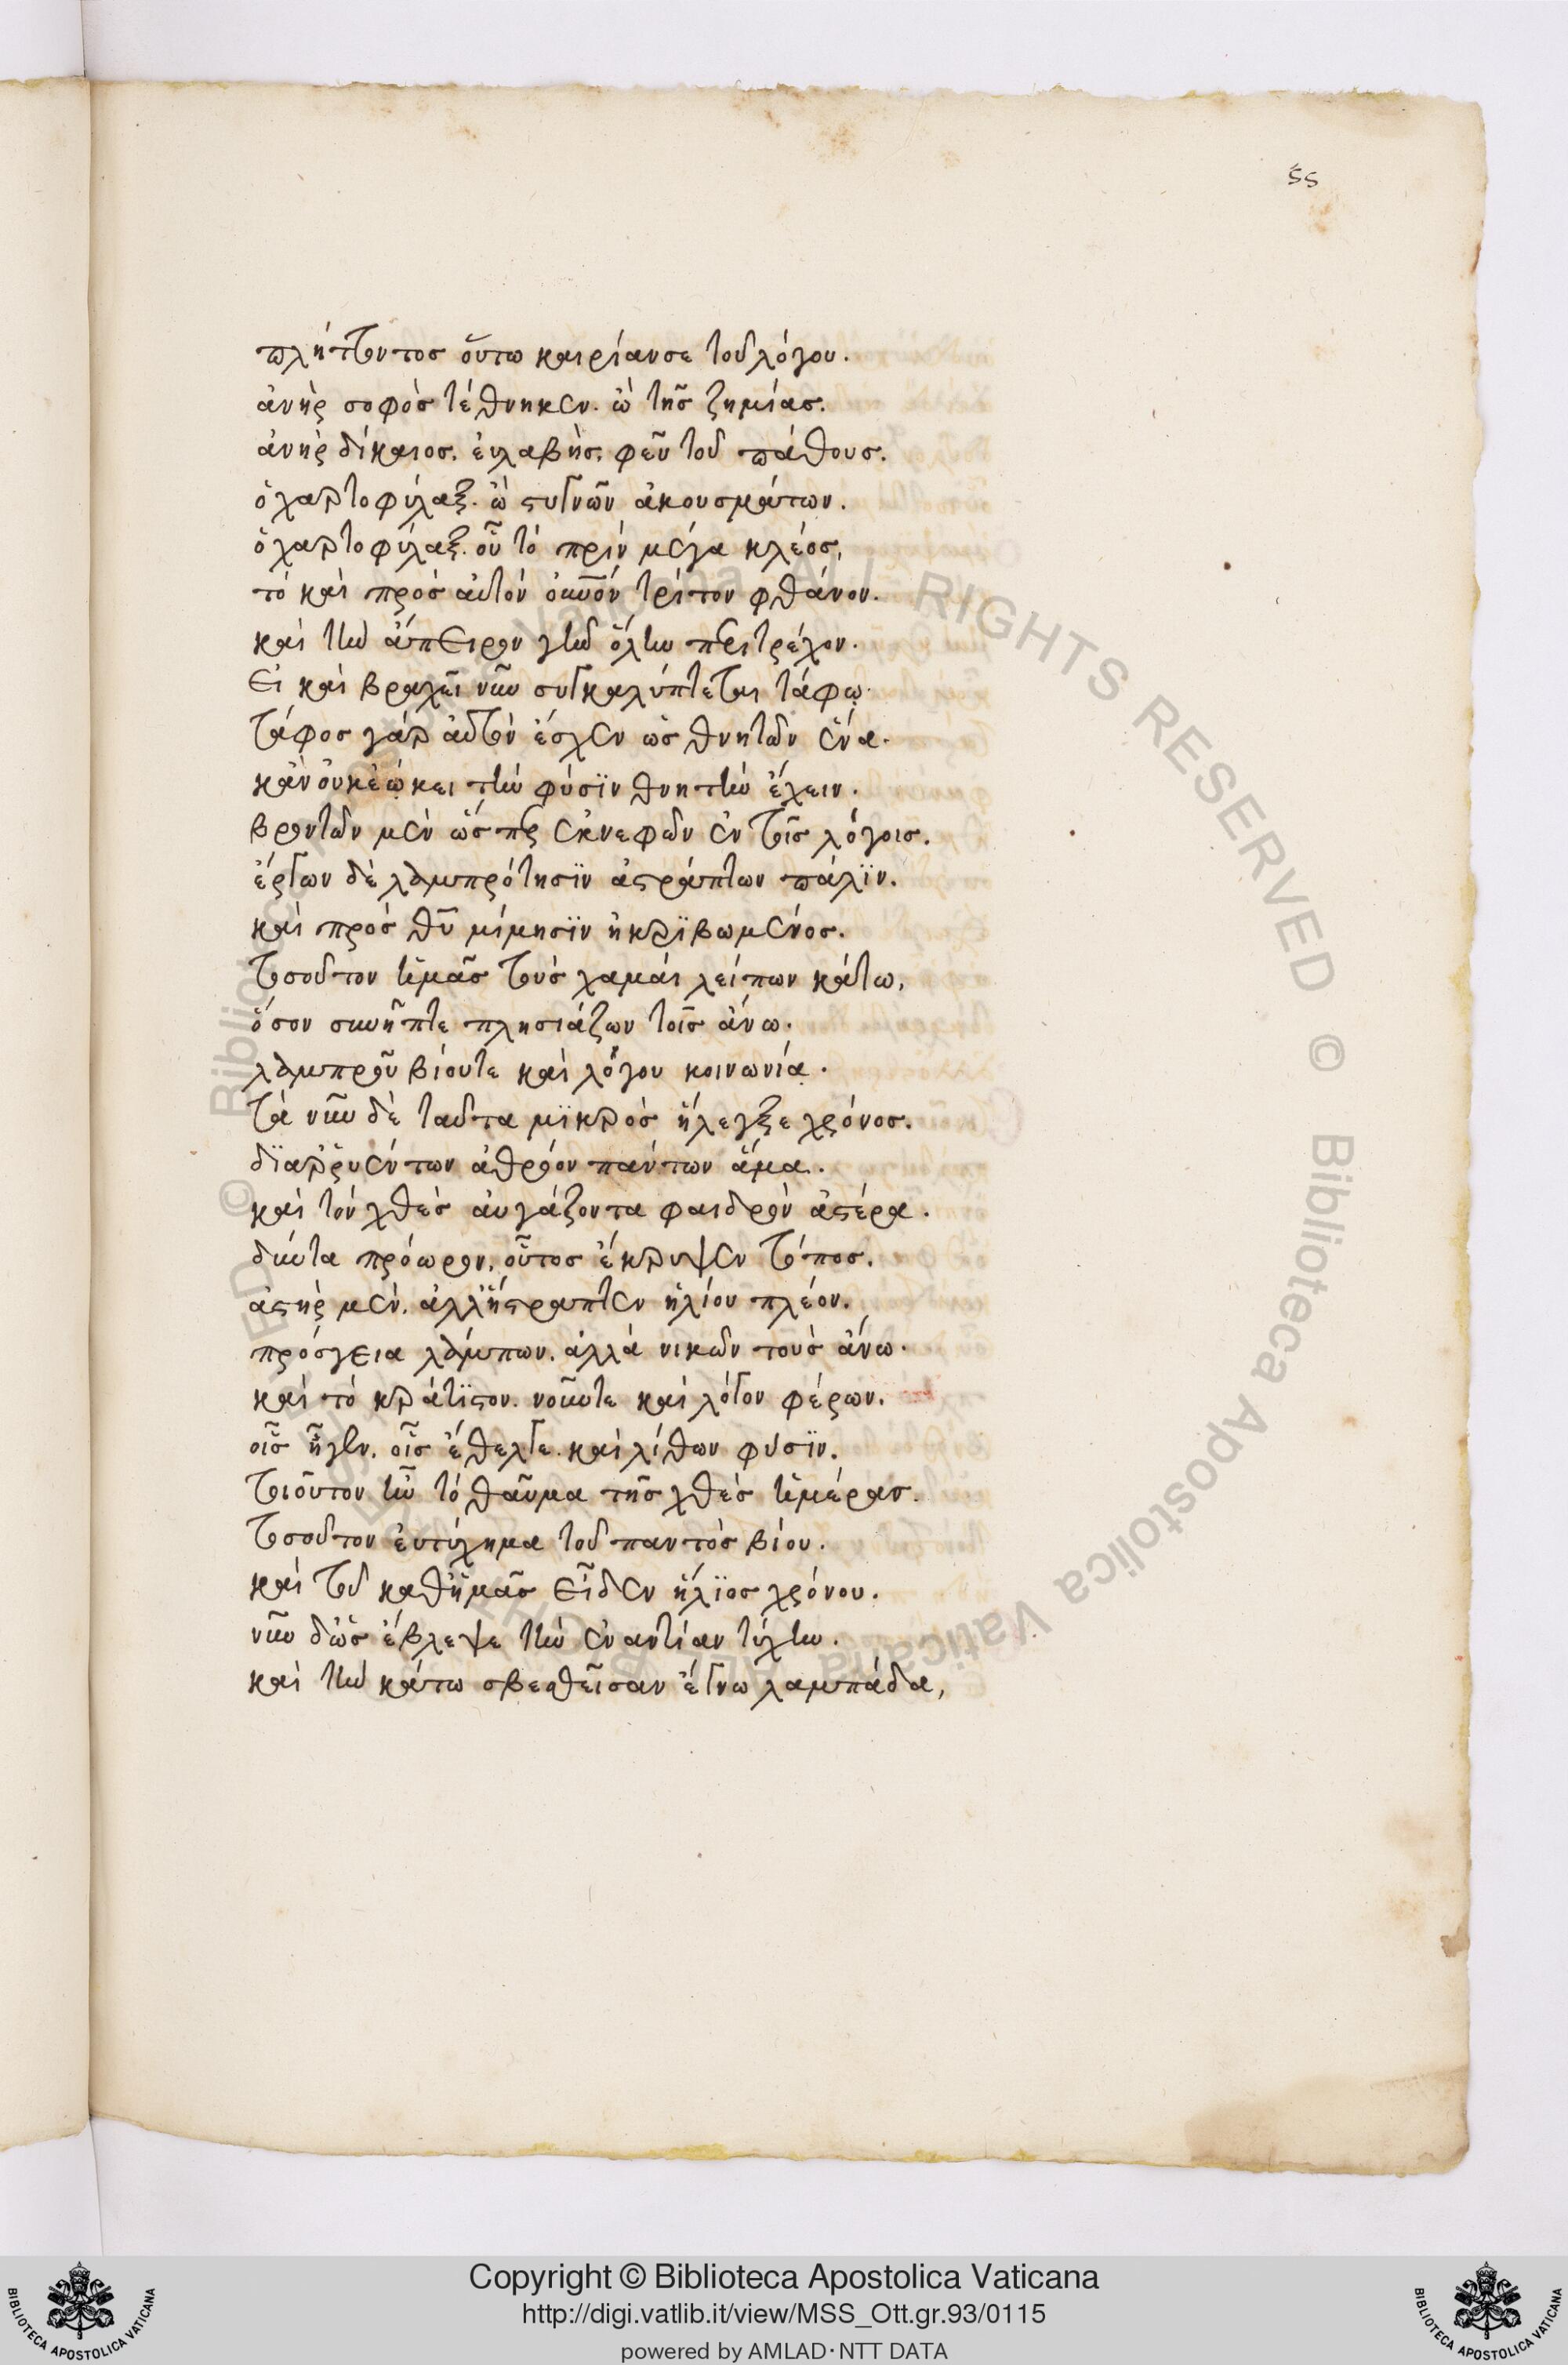 55
πλήττοντος οὕτω καιρίαν σε τοῦ λόγου.
ἀνὴρ σοφὸς τέθνηκεν. ὢ τῆς ζημίας.
ἀνὴρ δίκαιος. ἐυλαβὴς. φεῦ τοῦ πάθους.
ὁ χαρτοφύλαξ. ὢ στυγνῶν ἀκουσμάτων.
ὁ χαρτοφύλαξ. οὗ τὸ πρὶν μέγα κλέος,
τὸ καὶ πρὸς αὐτὸν οὐνὸν τρίτον φθάνον.
καὶ τὴν ἄπειρον γῆν ὅλην περιτρέχον.
Εἰ καὶ βραχεῖ νῦν συγκαλύπτεται τάφω.
τάφος γὰρ αὐτὸν ἔσχεν ὡς θνητῶν ἕνα.
κἂν οὐκ ἐώκει τὴν φύσϊν θνητὴν ἔχειν.
βροντῶν μὲν ὥσπερ ἐκ νεφῶν ἐν τοῖς λόγοις.
ἔργων δὲ λαμπρότησϊν ἀστράπτων πάλϊν.
καὶ πρὸς θυ μίμησϊν ἠκρϊβωμένος.
τοσοῦτον ἡμᾶς τοὺς χαμαὶ λείπων κάτω,
ὅσον συνῆπτε πλησιάζων τοῖς ἄνω.
λαμπροῦ βίου τε καὶ λόγου κοινωνία.
τὰ νῦν δὲ ταῦτα μϊκρὸς ἤλεγξε χρόνος.
δϊαρρυέντων ἀθρόον πάντων ἅμα.
καὶ τὸν χθὲς αὐγάζοντα φαιδρὸν ἀστέρα.
δύντα πρόωρον, οὗτος ἔκρυψεν τόπος.
ἀστὴρ μὲν. ἀλλ' ἤστραπτεν ἡλίου πλέον.
πρόσγεια λάμπων. ἀλλὰ νικῶν τοὺς ἄνω.
καὶ τὸ κράτϊστον. νοῦν τε καὶ λόγον φέρων.
οἷς ἦγεν. οἷς ἔθελγε. καὶ λίθων φύσϊν.
τοιοῦτον ἦν τὸ θαῦμα τῆς χθὲς ἡμέρας.
τοσοῦτον ἐυτύχημα τοῦ παντὸς βίου.
καὶ τοῦ καθ' ἡμᾶς εἶδεν ἥλϊος χρόνου.
νῦν δ' ὡς ἔβλεψε τὴν ἐναντίαν τύχην.
καὶ τὴν κάτω σβεσθεῖσαν ἔγνω λαμπάδα,
Copyright © Biblioteca Apostolica Vaticana
http://digi.vatlib.it/view/MSS_Ott.gr.93/0115
powered by AMLAD·NTT DATA